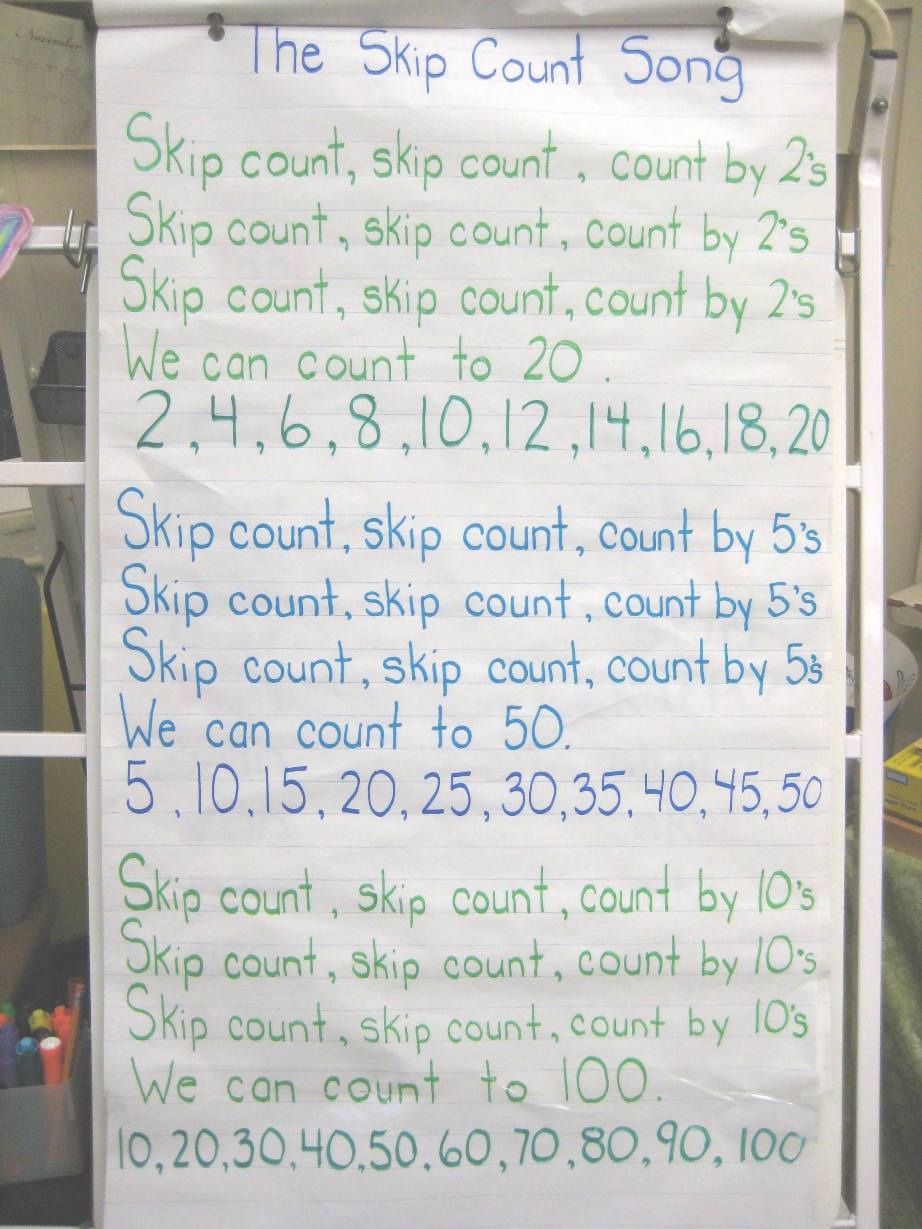 November
The Skip Count Song
Skip count, skip count, count by 2's
Skip count, skip count, count by 2's
Skip count, skip count, count by 2's
We can count to 20.
2, 4, 6, 8, 10, 12, 14, 16, 18, 20
Skip count, skip count, count by 5's
Skip count, skip count, count by 5's
Skip count, skip count, count by 5's
We can count to 50.
5, 10, 15, 20, 25, 30, 35, 40, 45, 50
Skip count, skip count, count by 10's
Skip count, skip count, count by 10's
Skip count, skip count, count by 10's
We can count to 100.
10, 20, 30, 40, 50, 60, 70, 80, 90, 100